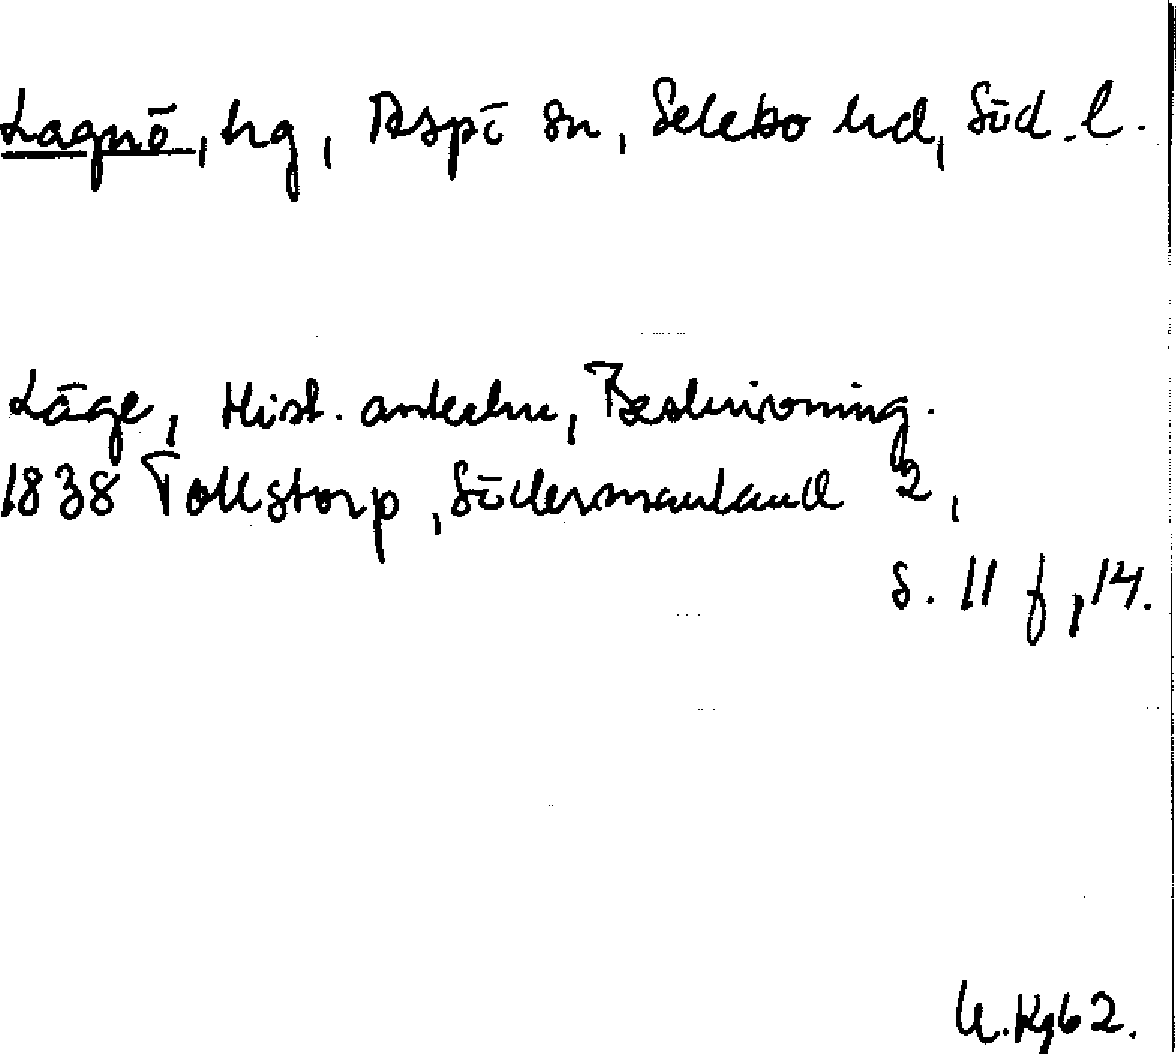 Lagnö, hg, Aspö sn, Selebo hd, Söd. l.
Läge, Hist. anteckn, Beskrivning.
1838 Tollstorp, Södermanland 2,
s. 11 f, 14.
U. Kg 62.